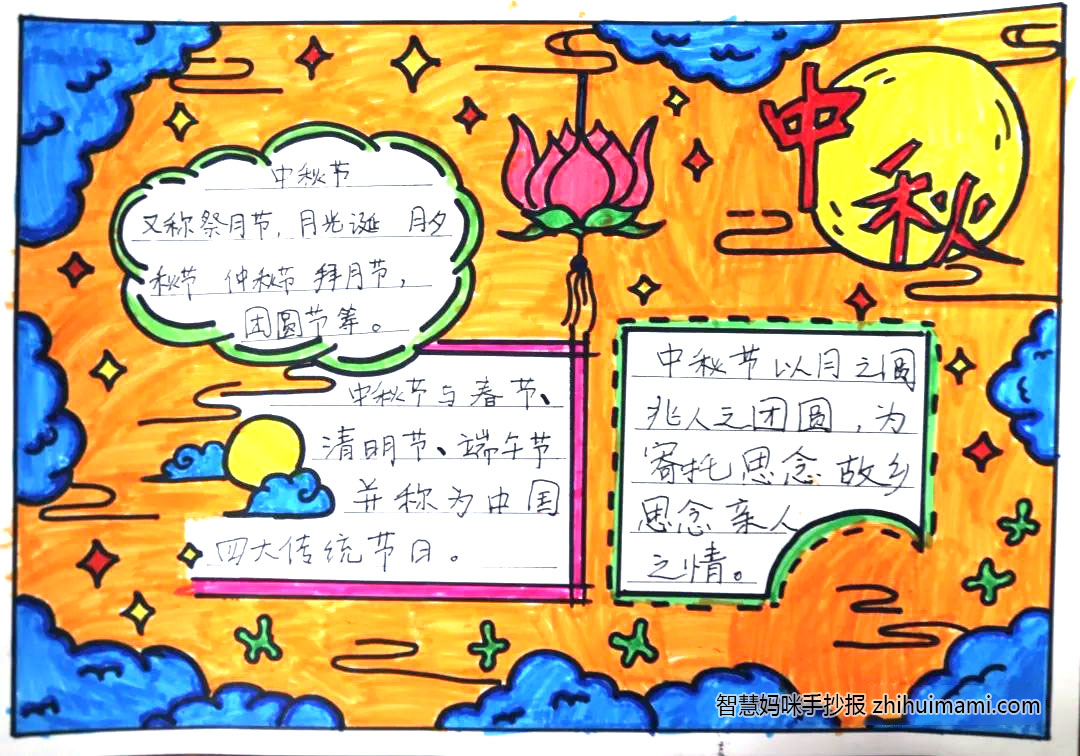 中秋
中秋节
又称祭月节，月光诞 月夕
秋节 仲秋节 拜月节，
团圆节等。
中秋节与春节、
清明节、端午节
并称为中国
四大传统节日。
中秋节以月之圆
兆人之团圆，为
寄托思念故乡
思念亲人
之情。
智慧妈咪手抄报 zhihuimami.com